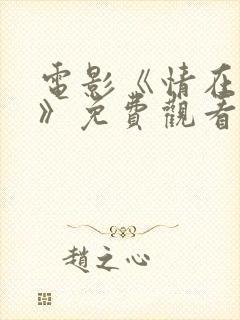 電影《情在
》免費觀看
趙之心